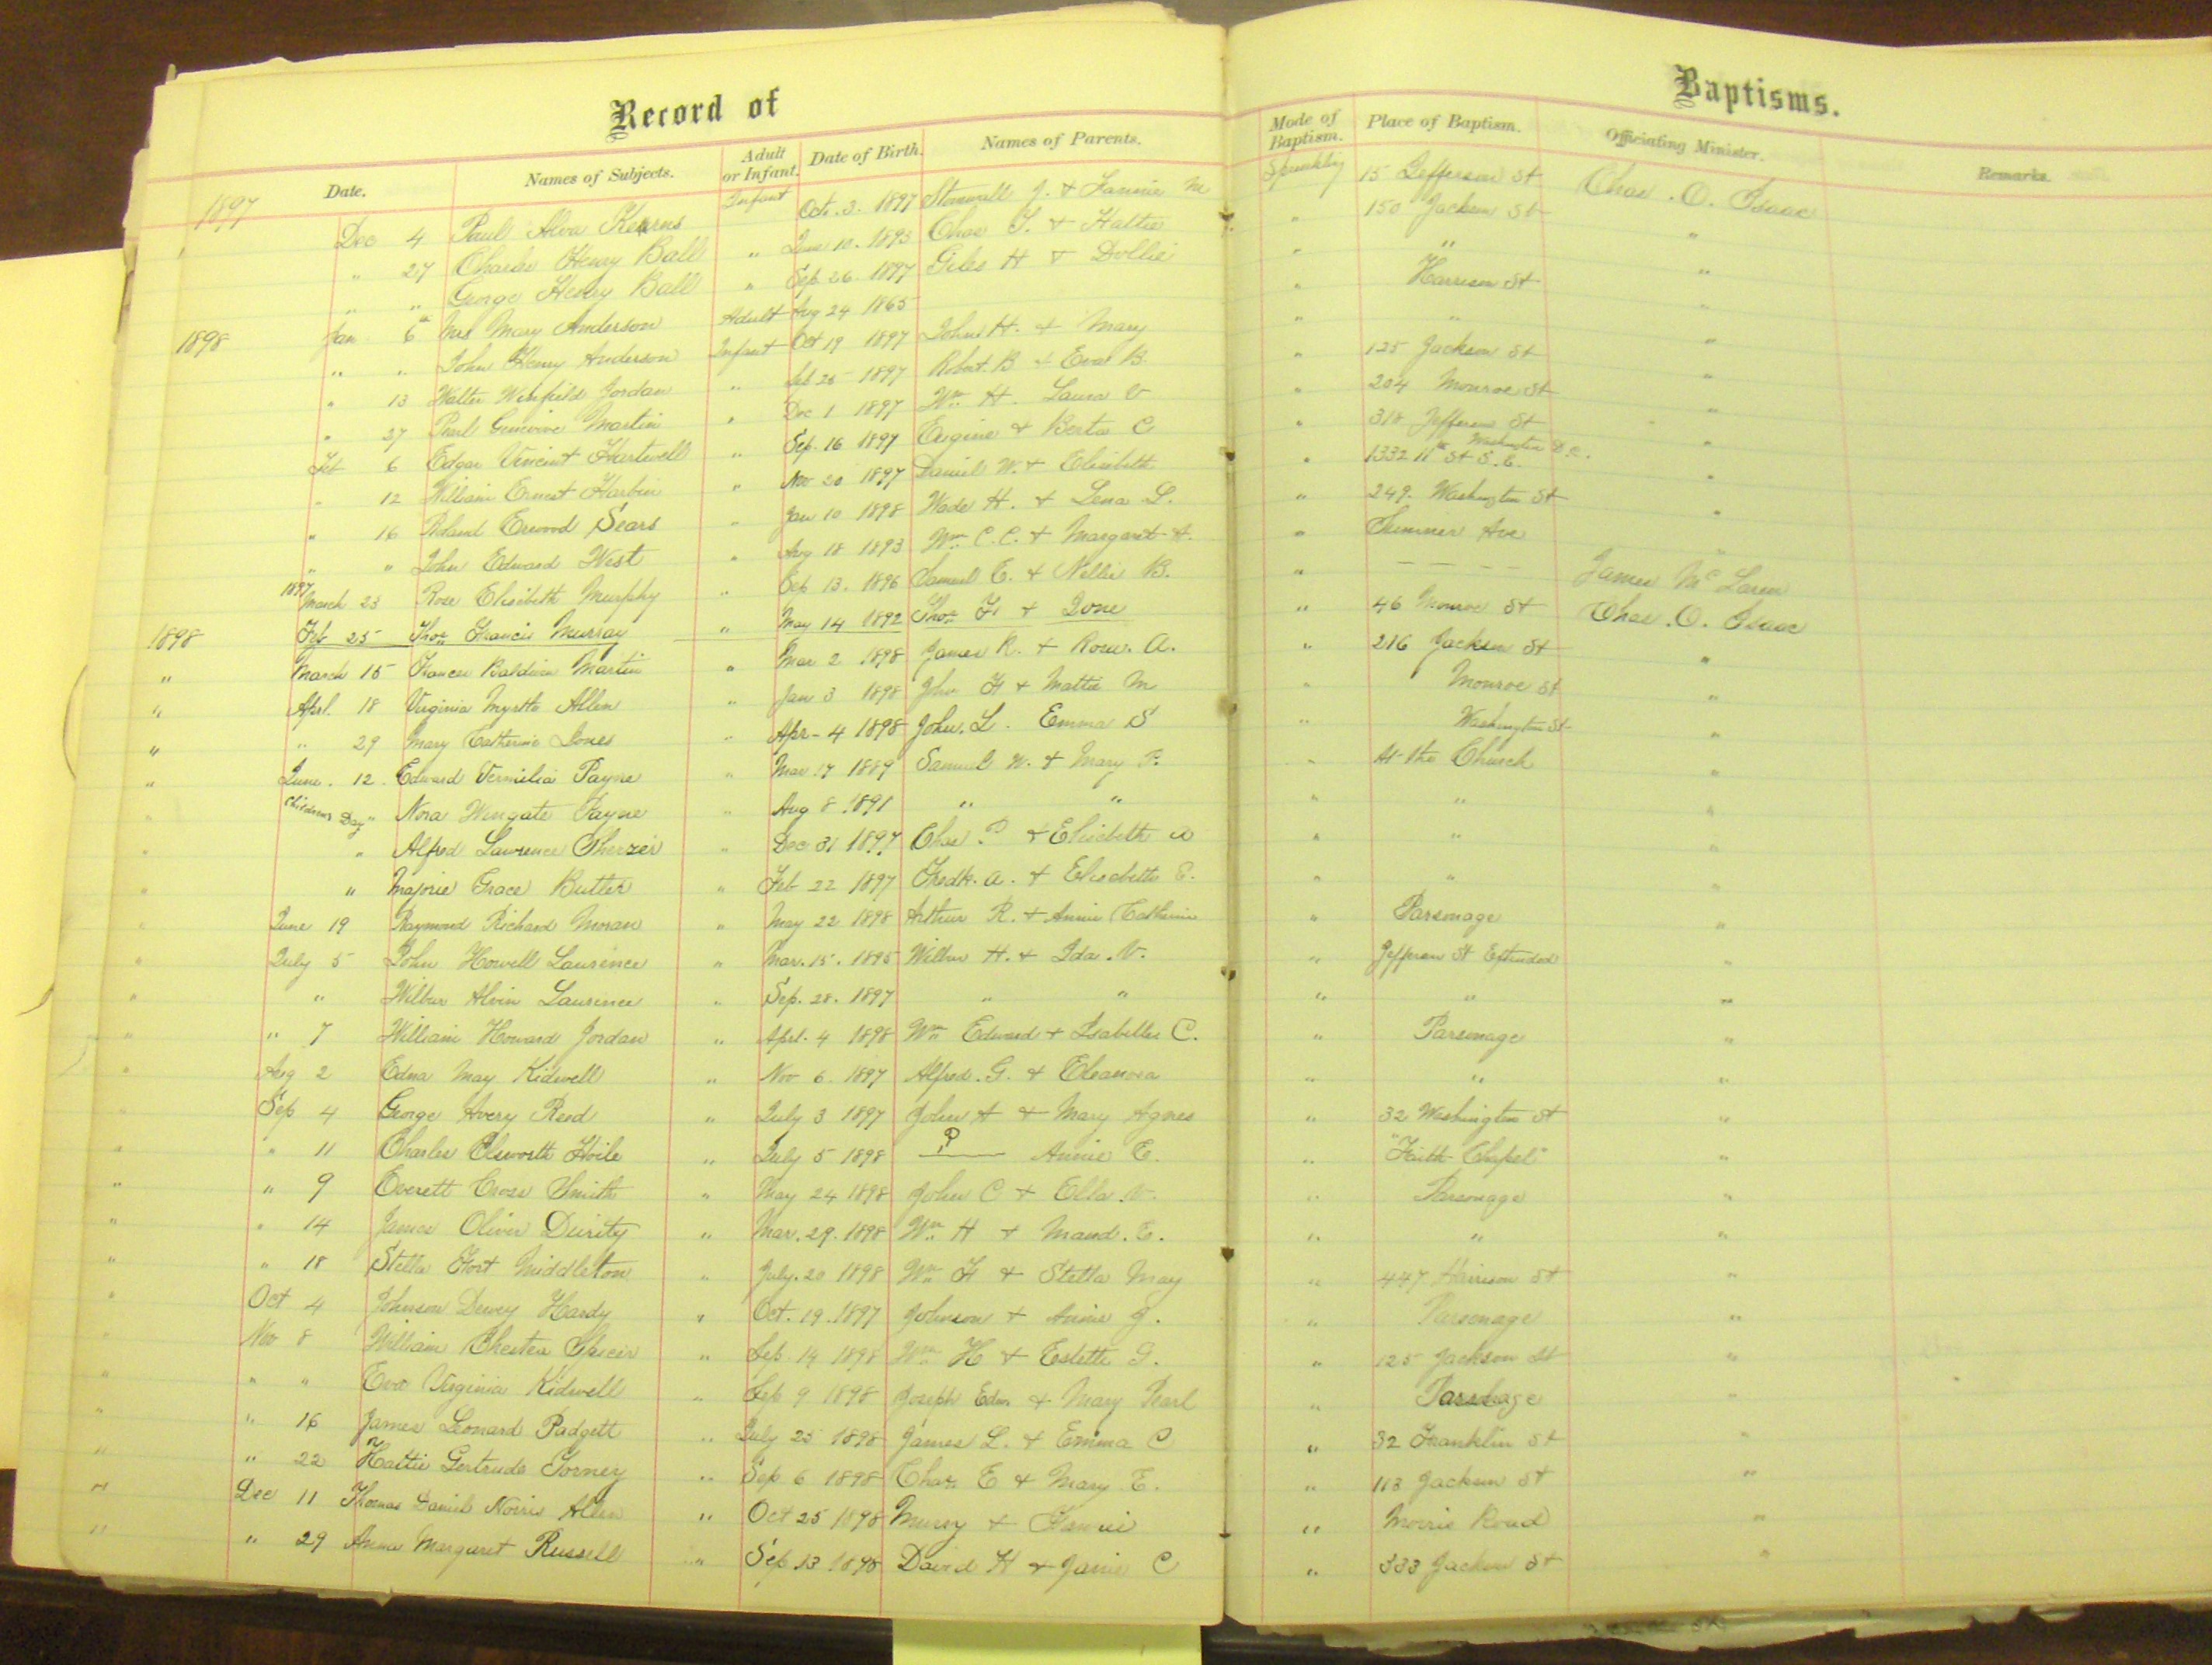 Record of Baptisms.
Date. Names of Subjects. Adult or Infant. Date of Birth. Names of Parents. Mode of Baptism. Place of Baptism. Officiating Minister. Remarks.
1897 Dec 4 Paul Alva Kearns Infant Oct. 3. 1897 Stonwall J. & Fannie M Sprinkling 15 Jefferson St Chas. O. Isaac
" 27 Charles Henry Ball " June 10. 1893 Chas T. & Hattie " 150 Jackson St "
" " George Henry Ball " Sep. 26. 1897 Giles H & Dollie " " "
1898 Jan 6th Mrs Mary Anderson Adult Aug 24 1865 " Harrison St "
" " John Henry Anderson Infant Oct 19 1897 John H. & Mary " " "
" 13 Walter Winfield Jordan " 1897 Robert B & Eva B. " 125 Jackson St "
" 27 Pearl Genivive Martin " Dec 1 1897 Wm H. Laura V " 204 Monroe St "
Feb 6 Edgar Vincent Hartwell " Sep. 16 1897 Eugine & Berta C " 318 Jefferson St "
" 12 William Ernest Harbin " Nov 20 1897 Daniel W. & Elisabeth " 1332 11th St S.E. Washington D.C. "
" 16 Roland Erwood Sears " Jan 10 1898 Wade H. & Lena L. " 249. Washington St "
" " John Edward West " Aug 18 1893 Wm C. C. & Margaret A. " Sumner Ave "
1897 March 23 Rose Elisabeth Murphy " 13. 1896 Samuel E. & Nellie B. " - - - - James McLaren
1898 Feb 25 Thos Francis Murray " May 14 1892 Thos F & Ione " 46 Monroe St Chas. O. Isaac
" March 15 Frances Baldwin Martin " Mar 2 1898 James R. & Rose. A. " 216 Jackson St "
" Aprl. 18 Virginia Myrtle Allen " Jan 3 1898 John F & Mattie M " Monroe St "
" " 29 Mary Catherine Jones " Apr- 4 1898 John. L. Emma S " Washington St "
" June. 12. Edward Vermilia Payne " Mar. 17 1889 Samuel W. & Mary F. " At the Church "
" Childrens Day " Nora Wingate Payne " Aug 8. 1891 " " " " "
" " Alfred Lawrence Sherzer " Dec 31 1897 Chas P & Elisabeth A " " "
" " Majorie Grace Butler " Feb 22 1897 Fredk. A. & Elisabeth E. " " "
" June 19 Raymond Richard Moran " May 22 1898 Arthur R. & Annie Catherine " Parsonage "
" July 5 John Howell Laurence " Mar. 15. 1895 Wilbur H. & Ida. V. " Jefferson St Extended "
" " Wilbur Alvin Laurence " Sep. 28. 1897 " " " " "
" " 7 William Howard Jordan " Aprl. 4 1898 Wm Edward & Isabelle C. " Parsonage "
" Aug 2 Edna May Kidwell " Nov 6. 1897 Alfred. G. & Eleanora " " "
" Sep 4 George Avery Reed " July 3 1897 John A & Mary Agnes " 32 Washington St "
" " 11 Charles Elsworth Hoile " July 5 1898 ? Annie E. " "Faith Chapel" "
" " 9 Everett Cross Smith " May 24 1898 John C & Ella. V. " Parsonage "
" " 14 James Oliver Deirity " Mar. 29. 1898 Wm H & Maud. E. " " "
" " 18 Stella Fort Middleton " July. 20 1898 Wm F & Stella May " 447 Harrison St "
" Oct 4 Johnson Dewey Hardy " Oct. 19. 1897 Johnson & Annie J. " Parsonage "
" Nov 8 William Chester Spicer " Sep. 14 1898 Wm H & Estelle G. " 125 Jackson St "
" " " Eva Virginia Kidwell " Sep 9 1898 Joseph Edw. & Mary Pearl " Parsonage "
" " 16 James Leonard Padgett " July 25 1898 James L. & Emma C " 32 Franklin St "
" " 22 Hattie Gertrude Torney " Sep 6 1898 Chas E & Mary E. " 113 Jackson St "
" Dec 11 Thomas Daniel Norris Allen " Oct 25 1898 Murry & Fannie " Morris Road "
" " 29 Anna Margaret Russell " Sep 13 1898 David H & Janie C " 333 Jackson St "